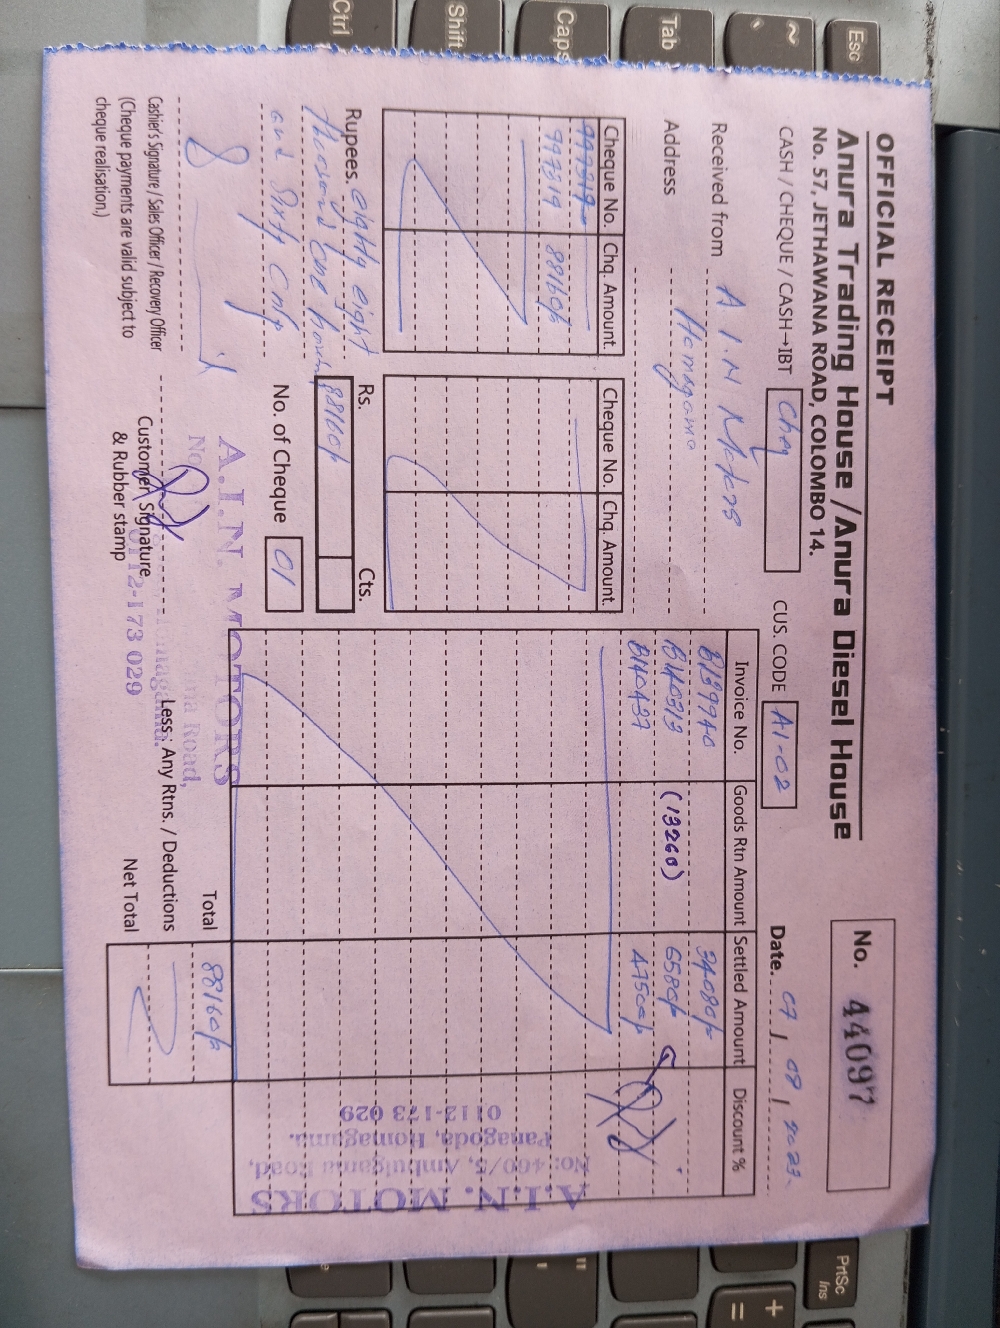 OFFICIAL RECEIPT
Anura Trading House / Anura Diesel House
No. 57, JETHAWANA ROAD, COLOMBO 14.
No. 44097
CASH / CHEQUE / CASH→IBT Cheq CUS. CODE A1-02 Date. 07 / 08 / 2023
Received from A I. N Motors
Address Homagama
Cheque No. Chq. Amount. Cheque No. Chq. Amount.
997319
997319 88160/-
Rupees. eighty eight
thousand One hund
and Sixty Only
Rs. Cts.
88160/-
No. of Cheque 01
Invoice No. Goods Rtn Amount Settled Amount Discount %
B139940 34080/-
B140313 (13260) 6580/-
B140437 47500/-
Total 88160/-
Less : Any Rtns. / Deductions
Net Total
Cashier's Signature / Sales Officer / Recovery Officer
(Cheque payments are valid subject to
cheque realisation.)
Customer Signature
& Rubber stamp
A.I.N. MOTORS
No
Road,
Homagama.
0112-173 029
A.I.N. MOTORS
No: 460/5, Ambulgama Road,
Panagoda, Homagama.
0112-173 029
Esc
~
Tab
Caps
Shift
Ctrl
PrtSc
Ins
+
=
"
'